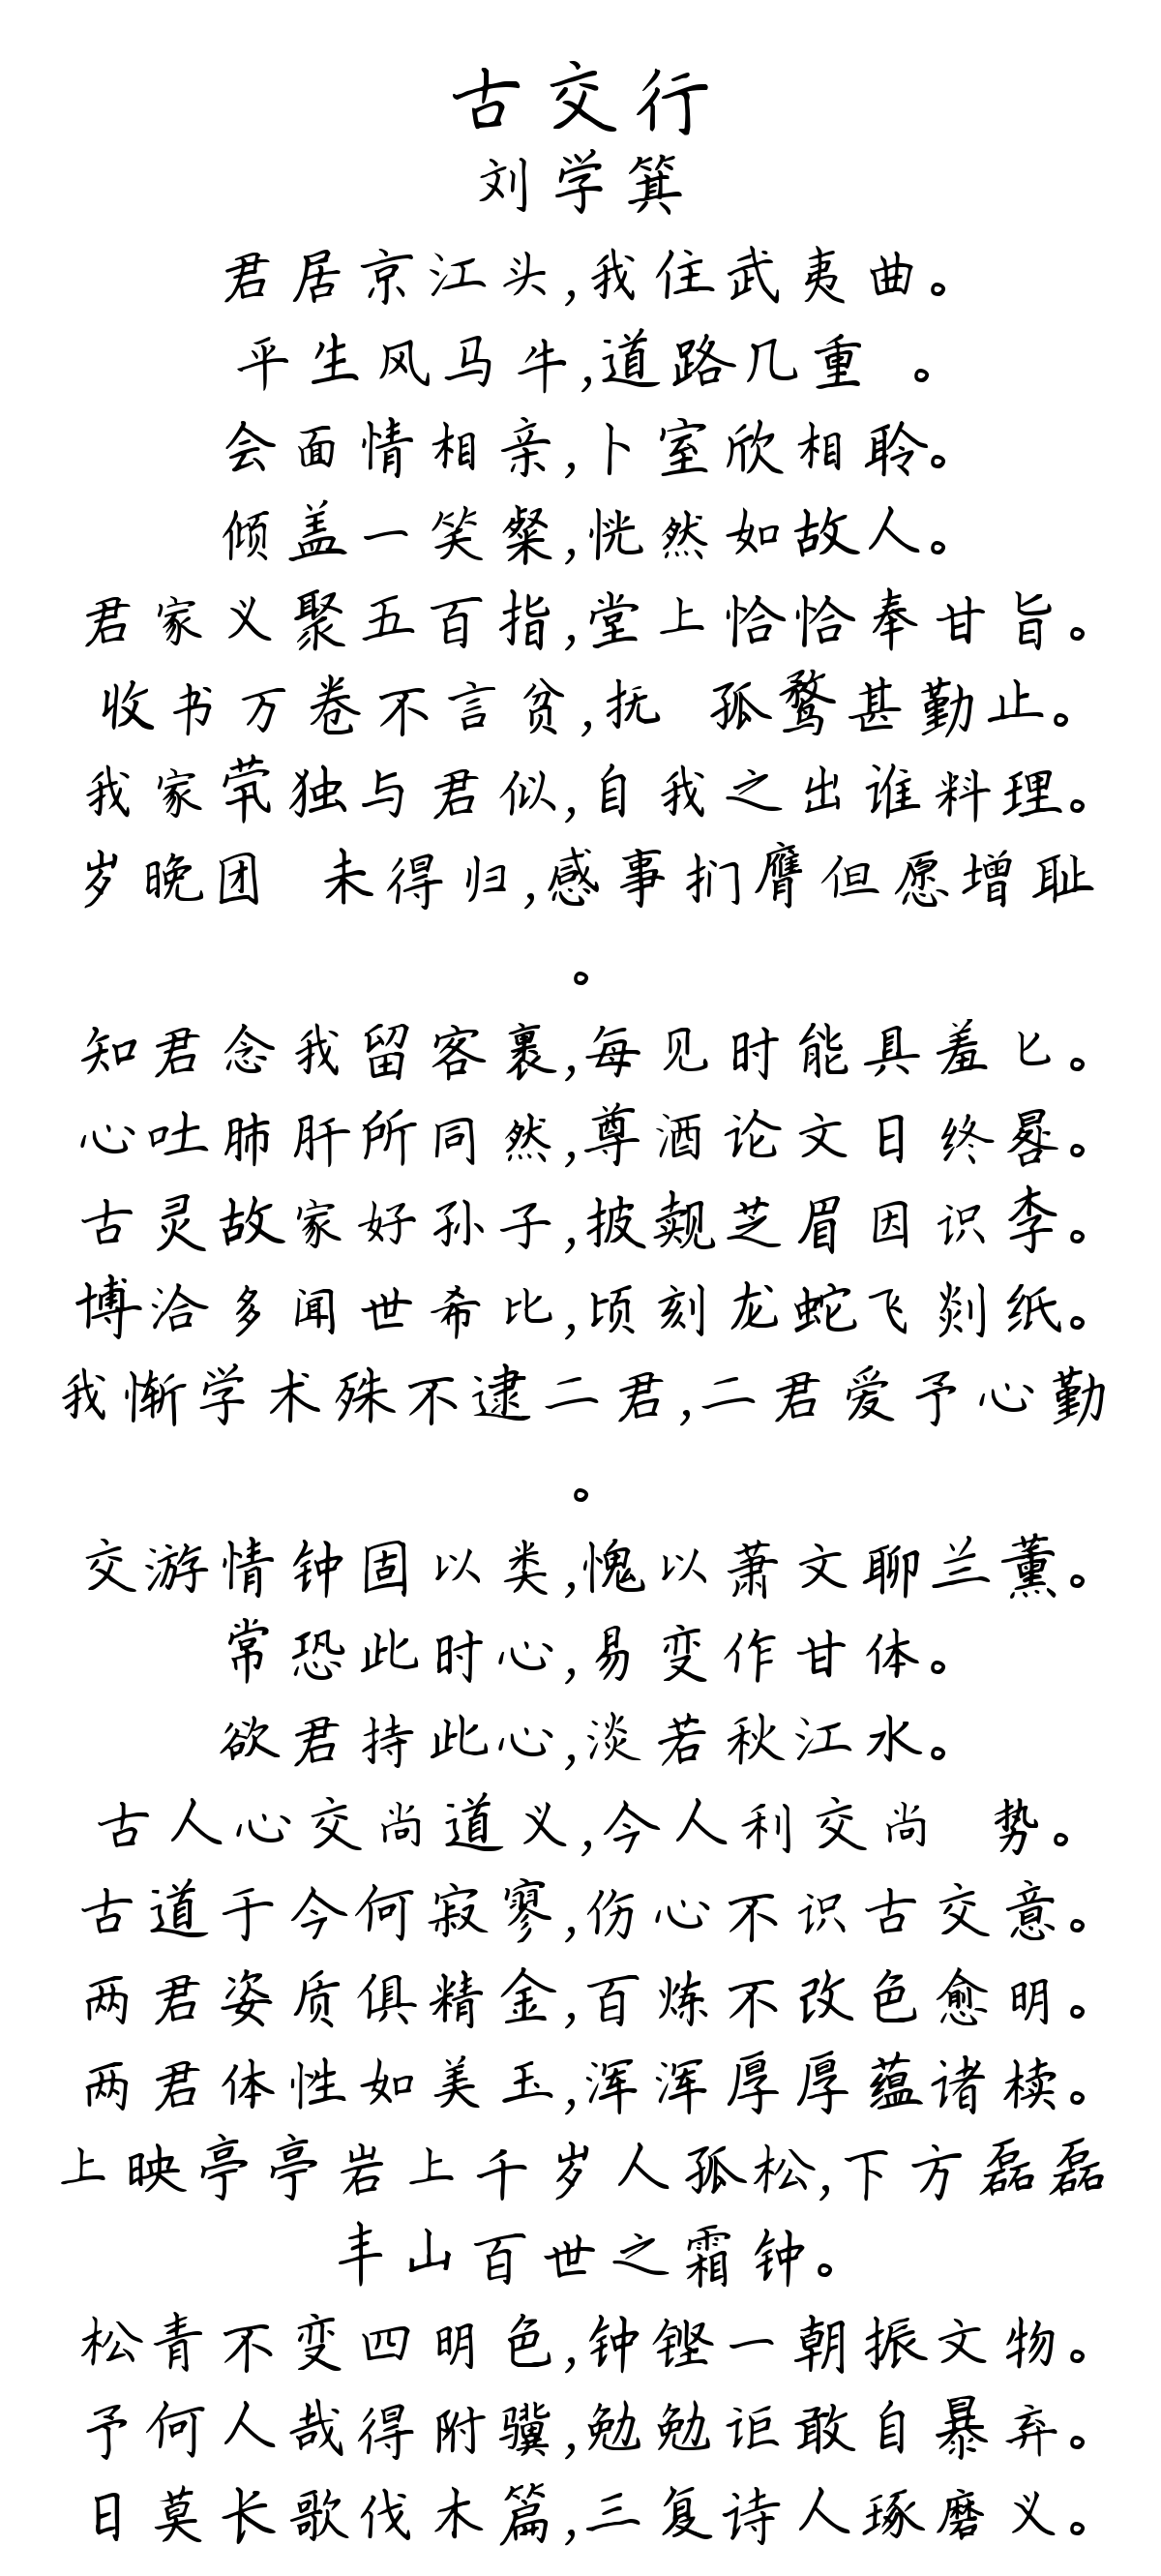 古交行
刘学箕
君居京江头,我住武夷曲。
平生风马牛,道路几重 。
会面情相亲,卜室欣相聆。
倾盖一笑粲,恍然如故人。
君家义聚五百指,堂上恰恰奉甘旨。
收书万卷不言贫,抚 孤鹜甚勤止。
我家茕独与君似,自我之出谁料理。
岁晚团 未得归,感事扪膺但愿增耻
。
知君念我留客裹,每见时能具羞匕。
心吐肺肝所同然,尊酒论文日终晷。
古灵故家好孙子,披觌芝眉因识李。
博洽多闻世希比,顷刻龙蛇飞剡纸。
我惭学术殊不逮二君,二君爱予心勤
。
交游情钟固以类,愧以萧文聊兰薰。
常恐此时心,易变作甘体。
欲君持此心,淡若秋江水。
古人心交尚道义,今人利交尚 势。
古道于今何寂寥,伤心不识古交意。
两君姿质俱精金,百炼不改色愈明。
两君体性如美玉,浑浑厚厚蕴诸椟。
上映亭亭岩上千岁人孤松,下方磊磊
丰山百世之霜钟。
松青不变四明色,钟铿一朝振文物。
予何人哉得附骥,勉勉讵敢自暴弃。
日莫长歌伐木篇,三复诗人琢磨义。